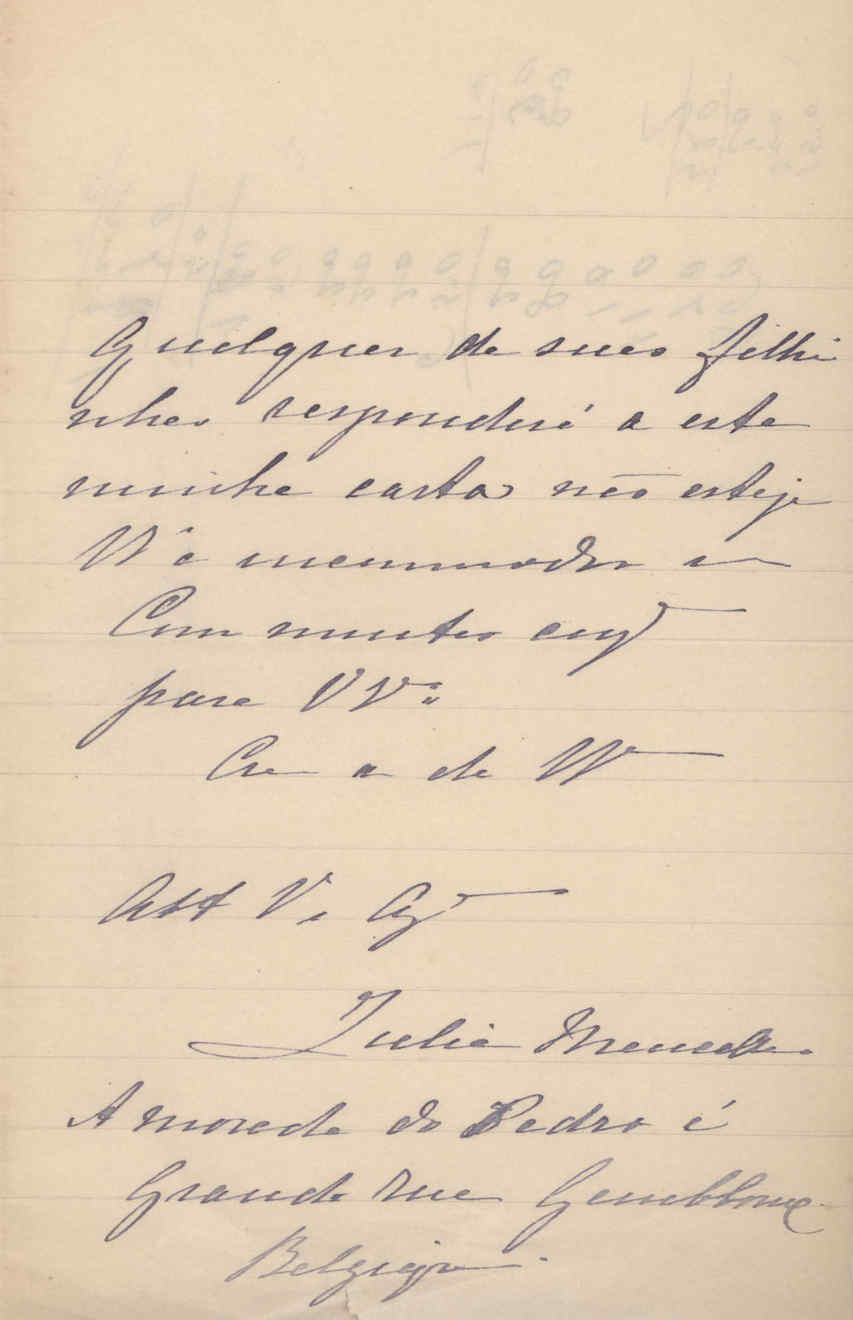 Qualquer de suas filhi
nhas responderá a esta
minha carta não esteja
V a incommodar
Com muitos
para V V.as
Cre a de V
Att V.
Julia
A morada do Pedro é
Grande rue Gembloux
Belgique.